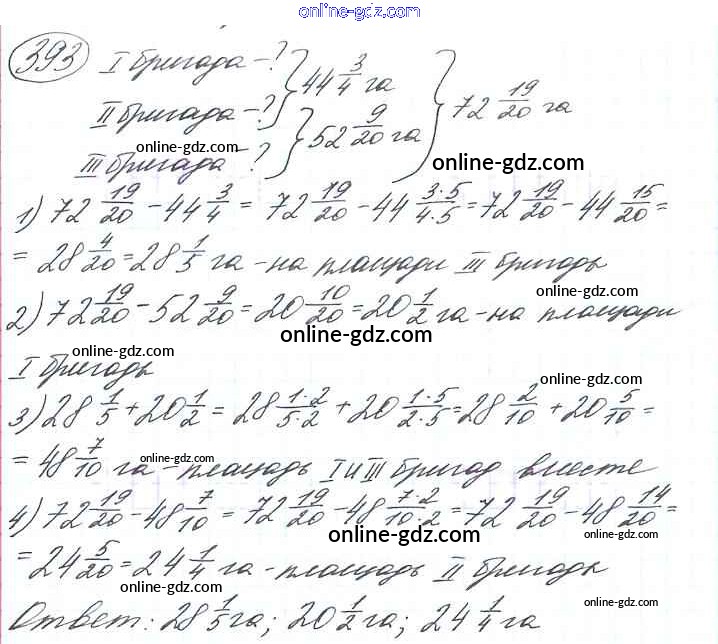 online-gdz.com
393 I бригада – ? } 44 3/4 га } 72 19/20 га
II бригада – ? } 52 9/20 га
III бригада ?
online-gdz.com
online-gdz.com
1) 72 19/20 – 44 3/4 = 72 19/20 – 44 3·5/4·5 = 72 19/20 – 44 15/20 =
= 28 4/20 = 28 1/5 га – на площади III бригады
online-gdz.com
online-gdz.com
2) 72 19/20 – 52 9/20 = 20 10/20 = 20 1/2 га – на площади
online-gdz.com
online-gdz.com
I бригады
online-gdz.com
3) 28 1/5 + 20 1/2 = 28 1·2/5·2 + 20 1·5/2·5 = 28 2/10 + 20 5/10 =
= 48 7/10 га – площадь I и III бригад вместе
online-gdz.com
online-gdz.com
4) 72 19/20 – 48 7/10 = 72 19/20 – 48 7·2/10·2 = 72 19/20 – 48 14/20 =
online-gdz.com
= 24 5/20 = 24 1/4 га – площадь II бригады
online-gdz.com
online-gdz.com
Ответ: 28 1/5 га; 20 1/2 га; 24 1/4 га
online-gdz.com
online-gdz.com